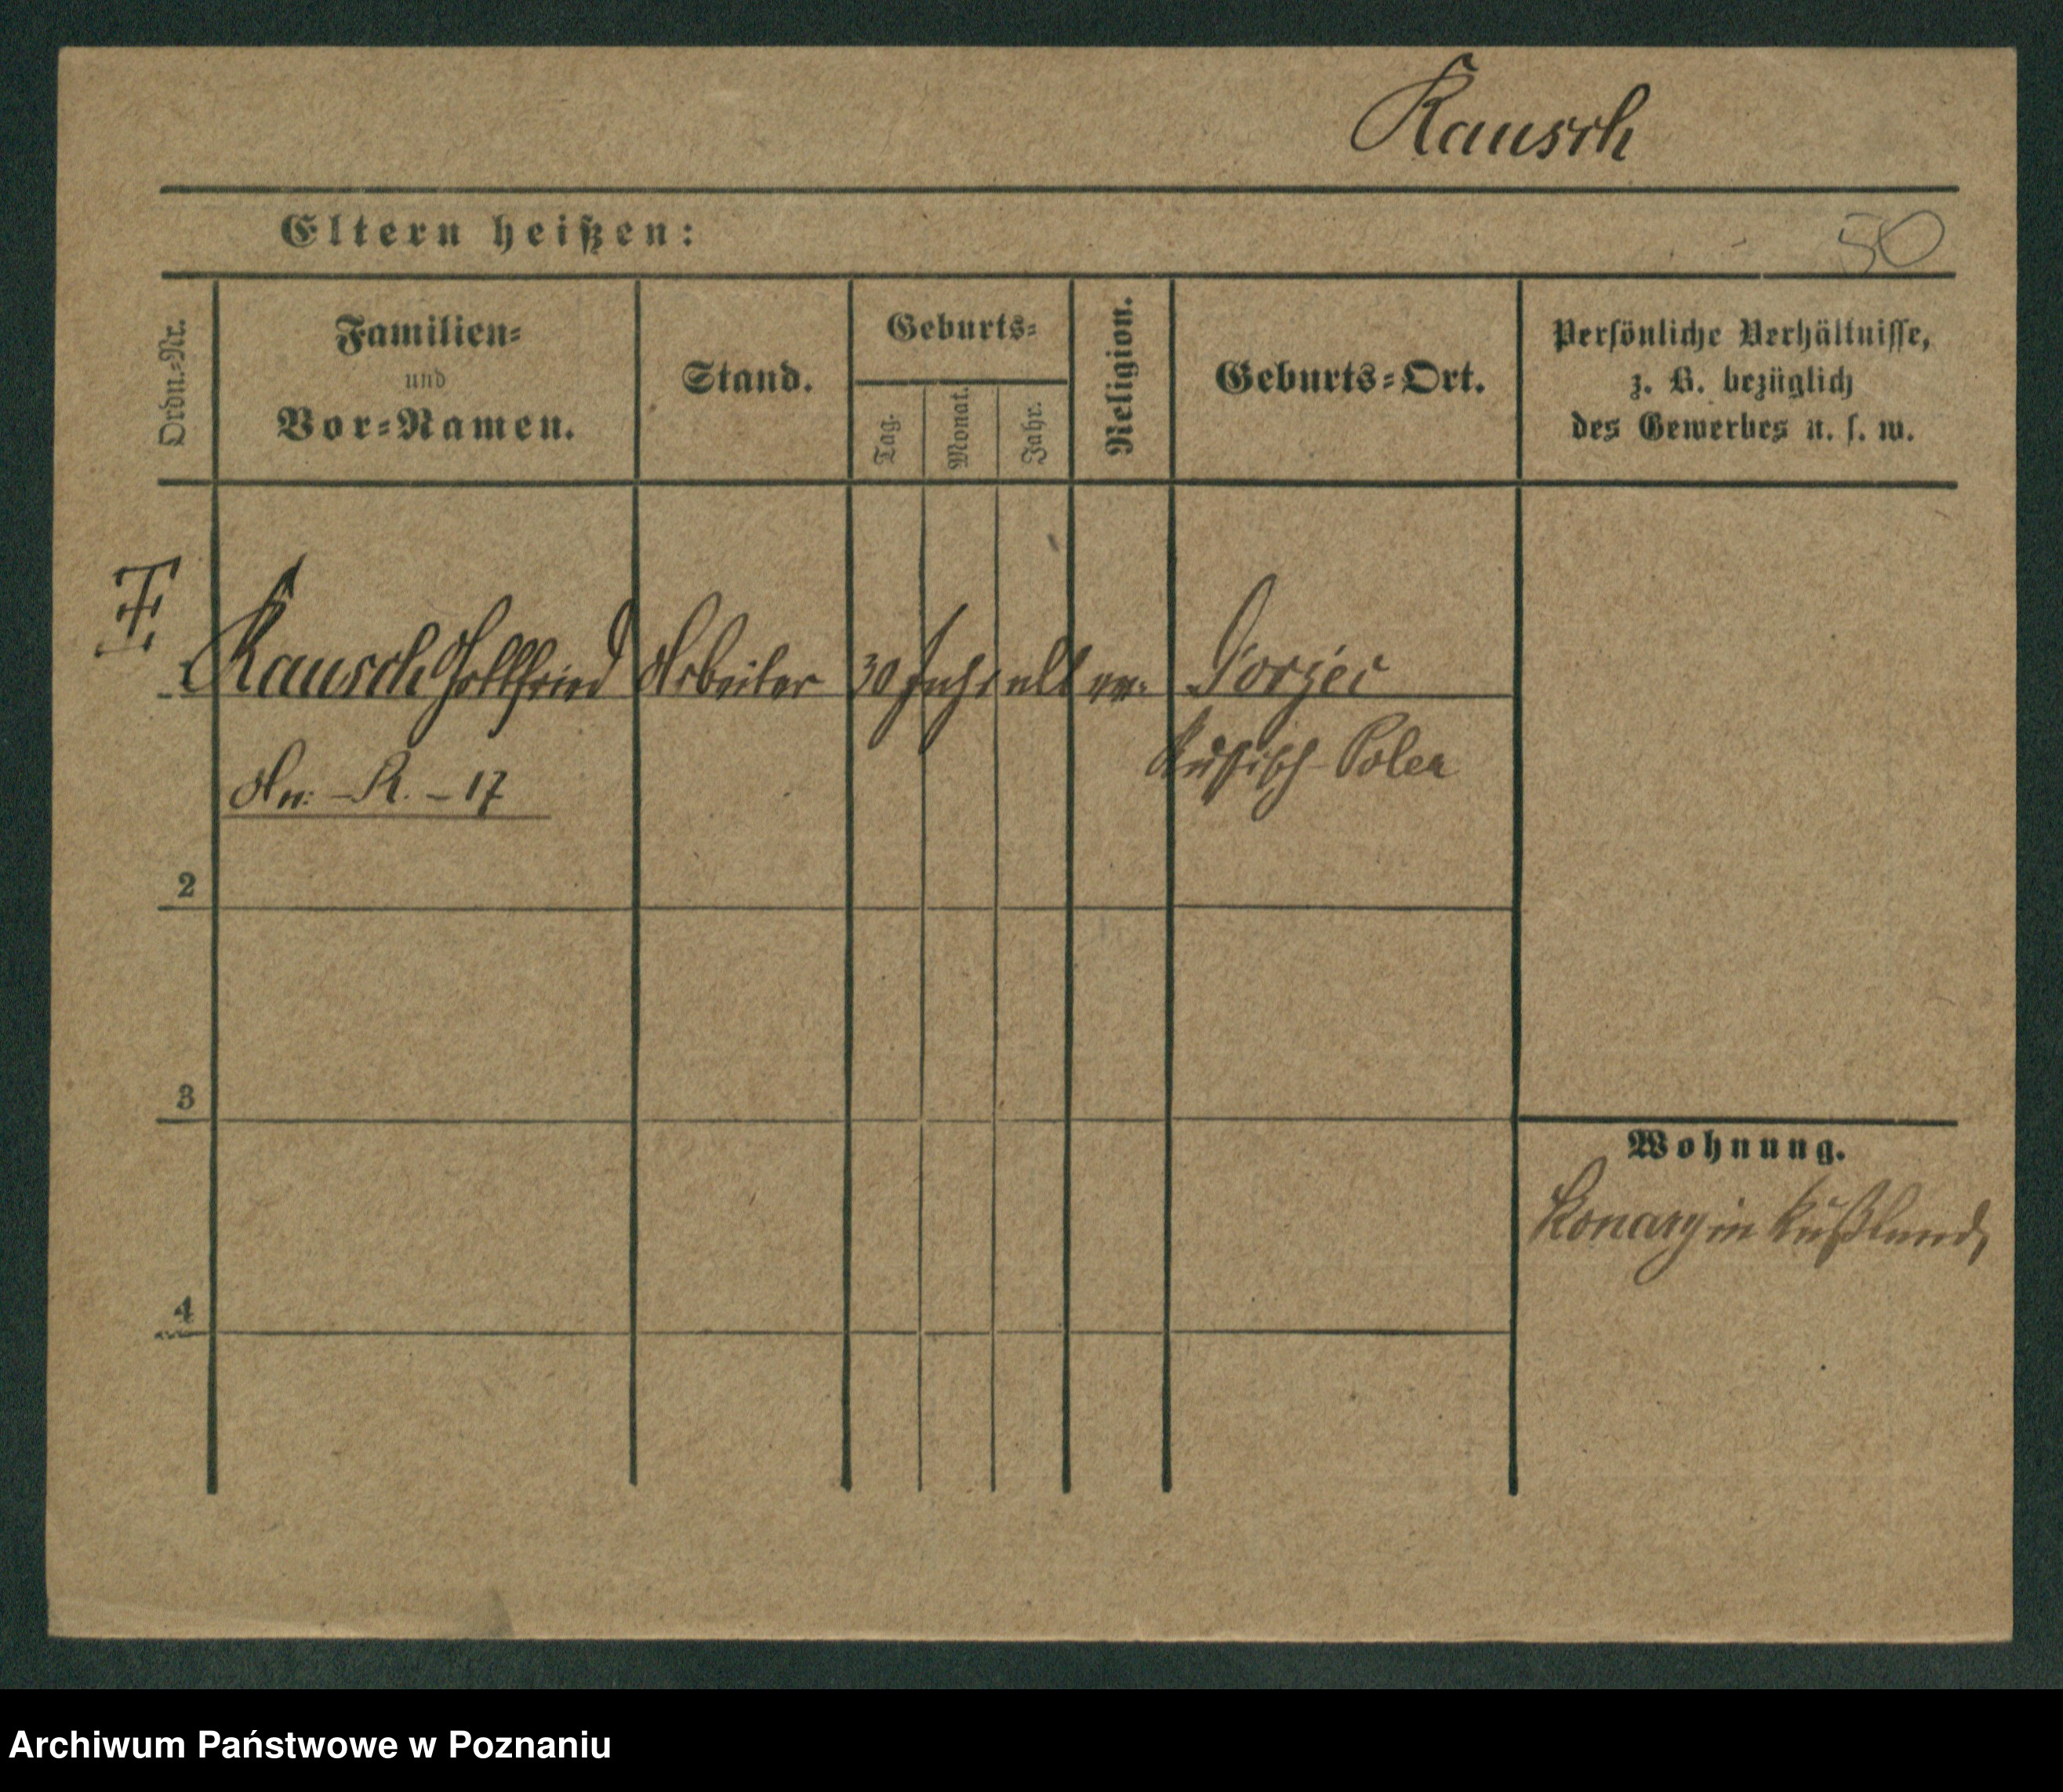 Rausch
Eltern heißen:
50
Ordn.-Nr.
Familien- und Vor-Namen.
Stand.
Geburts-
Tag.
Monat.
Jahr.
Religion.
Geburts-Ort.
Persönliche Verhältnisse,
z. B. bezüglich
des Gewerbes u. s. w.
Rausch Gottfried Arbeiter 30 Jahr alt ev.
Russisch-Polen
An: - R. - 17
2
3
4
Wohnung.
Konary in Rußland
Archiwum Państwowe w Poznaniu